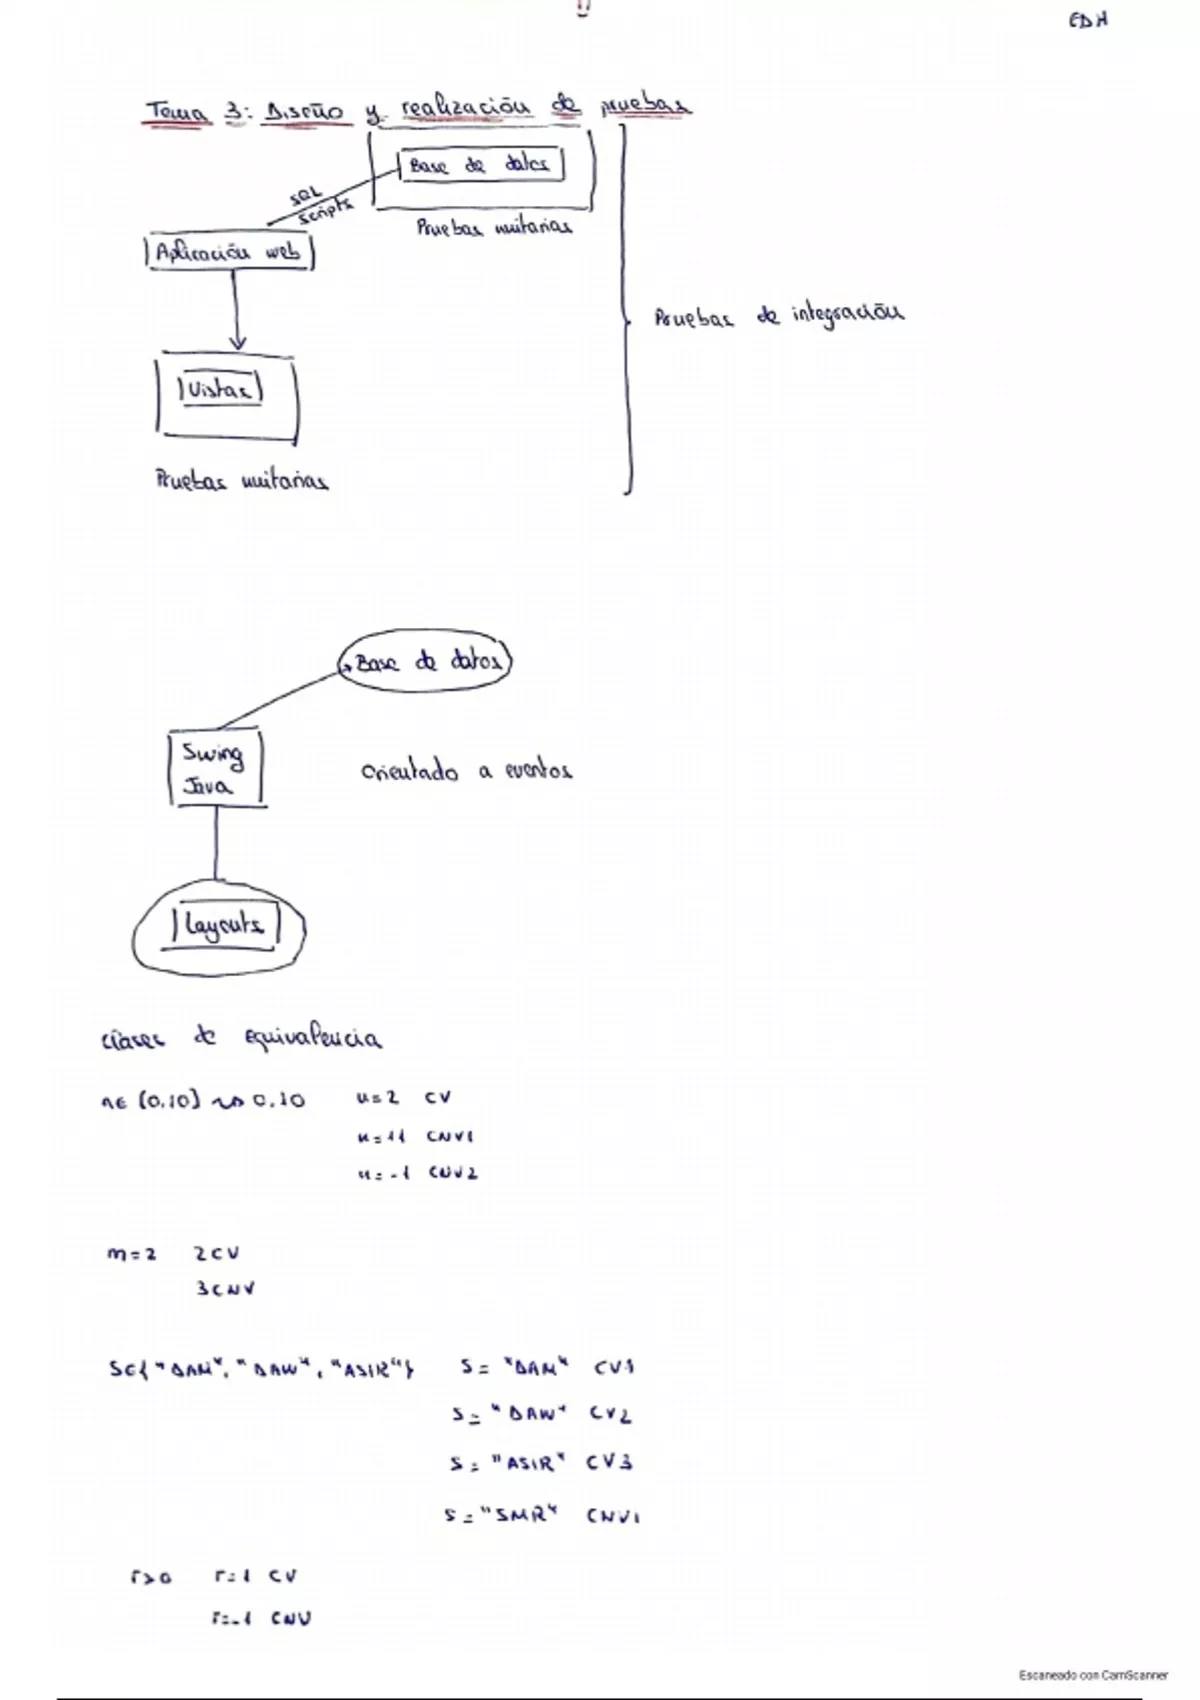 EDH
Tema 3: Diseño y realización de pruebas
Base de datos
SQL
scripts
Pruebas unitarias
Aplicación web
Pruebas de integración
Vistas
Pruebas unitarias
Base de datos
Swing
Java
Orientado a eventos
Layouts
Clases de equivalencia
n∈[0,10] ⇝ 0,10 n=2 CV
n=11 CNV1
n=-1 CNV2
m=2 2CV
3CNV
S∈{"DAM", "DAW", "ASIR"} S="DAM" CV1
S="DAW" CV2
S="ASIR" CV3
S="SMR" CNV1
r>0 r=1 CV
r=-1 CNV
Escaneado con CamScanner